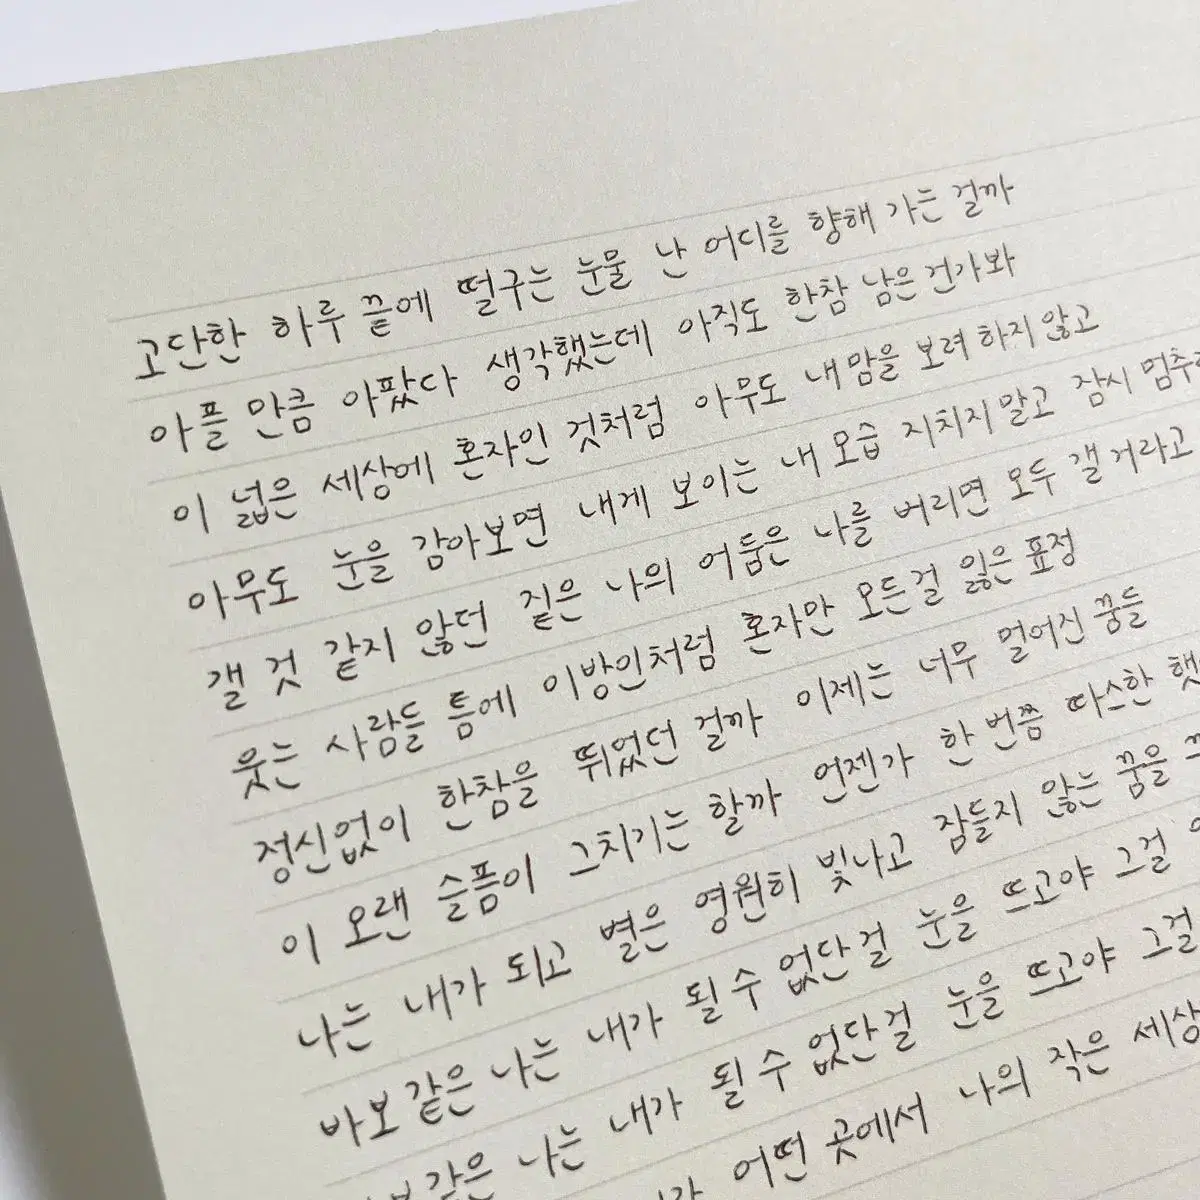 고단한 하루 끝에 떨구는 눈물 난 어디를 향해 가는 걸까
아플 만큼 아팠다 생각했는데 아직도 한참 남은 건가봐
이 넓은 세상에 혼자인 것처럼 아무도 내 맘을 보려 하지 않고
아무도 눈을 감아보면 내게 보이는 내 모습 지치지 말고 잠시 멈추라
갤 것 같지 않던 짙은 나의 어둠은 나를 버리면 모두 갤 거라고
웃는 사람들 틈에 이방인처럼 혼자만 모든걸 잃은 표정
정신없이 한참을 뛰었던 걸까 이제는 너무 멀어진 꿈들
이 오랜 슬픔이 그치기는 할까 언젠가 한 번쯤 따스한
나는 내가 되고 별은 영원히 빛나고 잠들지 않는 꿈을
바보 같은 나는 내가 될 수 없단 걸 눈을 뜨고야 그걸
같은 나는 내가 될 수 없단 걸 눈을 뜨고야 그걸
어떤 곳에서 나의 작은 세상